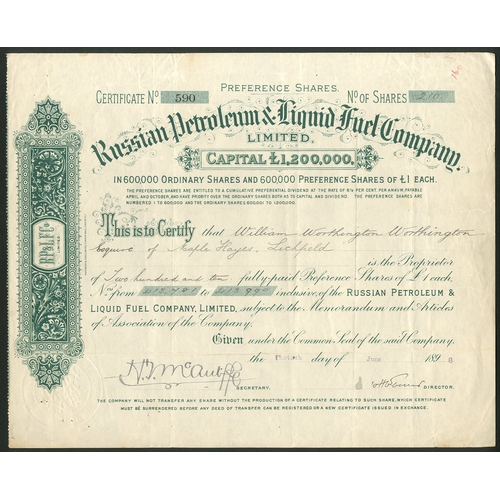 PREFERENCE SHARES.
CERTIFICATE No 590 No OF SHARES 210.
Russian Petroleum & Liquid Fuel Company
LIMITED.
CAPITAL £1,200,000,
IN 600000 ORDINARY SHARES AND 600,000 PREFERENCE SHARES OF £1 EACH.
THE PREFERENCE SHARES ARE ENTITLED TO A CUMULATIVE PREFERENTIAL DIVIDEND AT THE RATE OF 6½ PER CENT. PER ANNUM, PAYABLE
APRIL AND OCTOBER, AND HAVE PRIORITY OVER THE ORDINARY SHARES BOTH AS TO CAPITAL AND DIVIDEND. THE PREFERENCE SHARES ARE
NUMBERED 1 TO 600,000 AND THE ORDINARY SHARES 600,001 TO 1,200,000.
This is to Certify that William Worthington Worthington
Esquire of Maple Hayes, Lichfield
is the Proprietor
of Two hundred and ten fully paid Preference Shares of £1 each,
Nos from to inclusive, of the RUSSIAN PETROLEUM &
LIQUID FUEL COMPANY, LIMITED, subject to the Memorandum and Articles
of Association of the Company.
Given under the Common Seal of the said Company,
the day of June 189
SECRETARY. DIRECTOR.
THE COMPANY WILL NOT TRANSFER ANY SHARE WITHOUT THE PRODUCTION OF A CERTIFICATE RELATING TO SUCH SHARE, WHICH CERTIFICATE
MUST BE SURRENDERED BEFORE ANY DEED OF TRANSFER CAN BE REGISTERED OR A NEW CERTIFICATE ISSUED IN EXCHANGE.
RP&LFCo
LIMITED